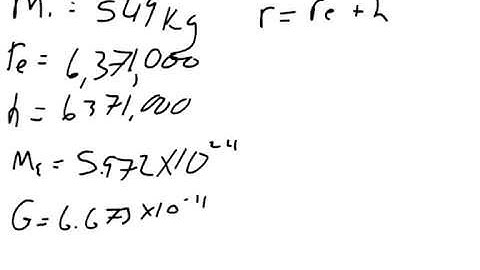 M₁ = 549 Kg
r = re + h
re = 6,371,000
h = 6371,000
Me = 5.972 X 10²⁴
G = 6.673 X10⁻¹¹